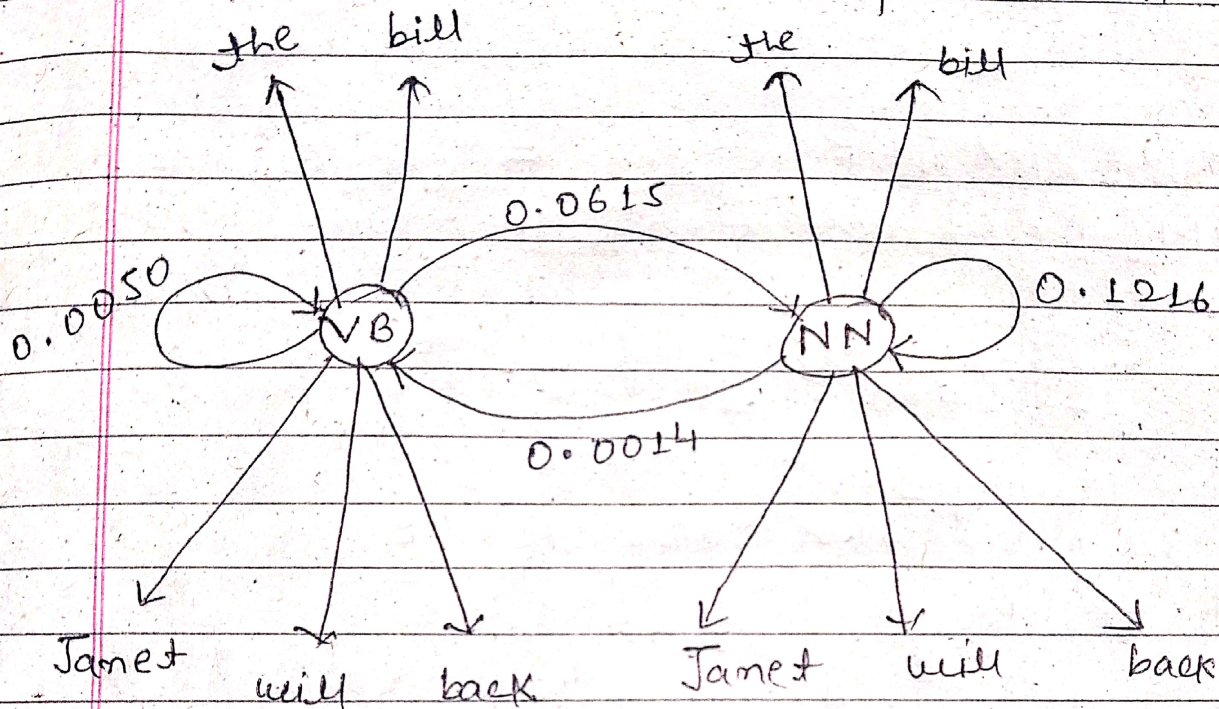 the bill the bill
0.0615
0.0050 VB NN 0.1216
0.0014
Janet will back Janet will back